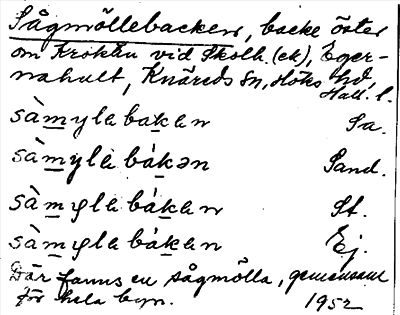 Sågmöllebacken, backe öster
om Krokån vid Skolh. (ek), Eger-
nahult, Knäreds sn, Höks hd,
Hall. l.
sàmylabakan Sa.
sàmylàbákən Sand.
sàmylabákan St.
sàmylabákan Ej.
Där fanns en sågmölla, gemensam
för hela byn. 1952